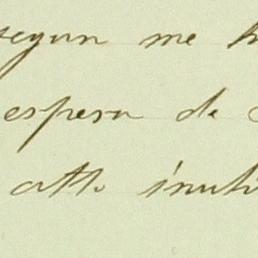 segun me
espera de
atto inuti